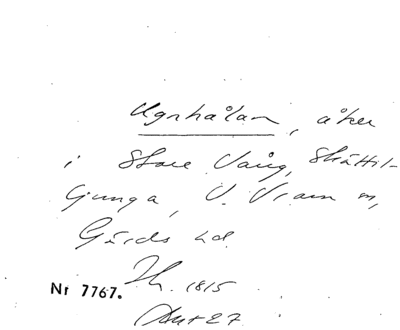 Ugnhålan, åker
i Store Vång, Skättil-
ljunga, V. Vram sn,
Gärds hd.
Nr 7767. 1815